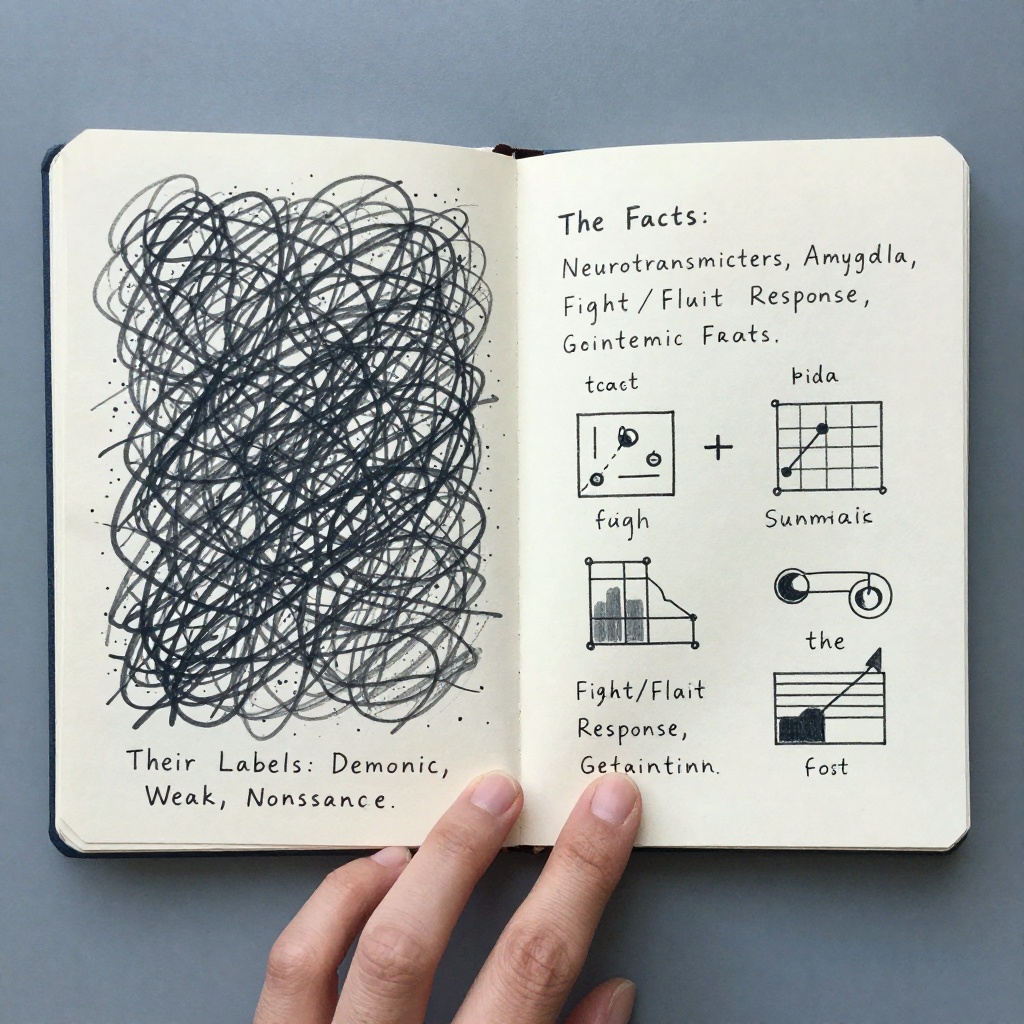 Their Labels: Demonic,
Weak, Nonssance.
The Facts:
Neurotransmicters, Amygdla,
Fight/Fluit Response,
Gointemic Fraats.
tcact
þida
+
fuigh
Sunmiaik
the
Fight/Flait
Response,
Getaintinn.
fost